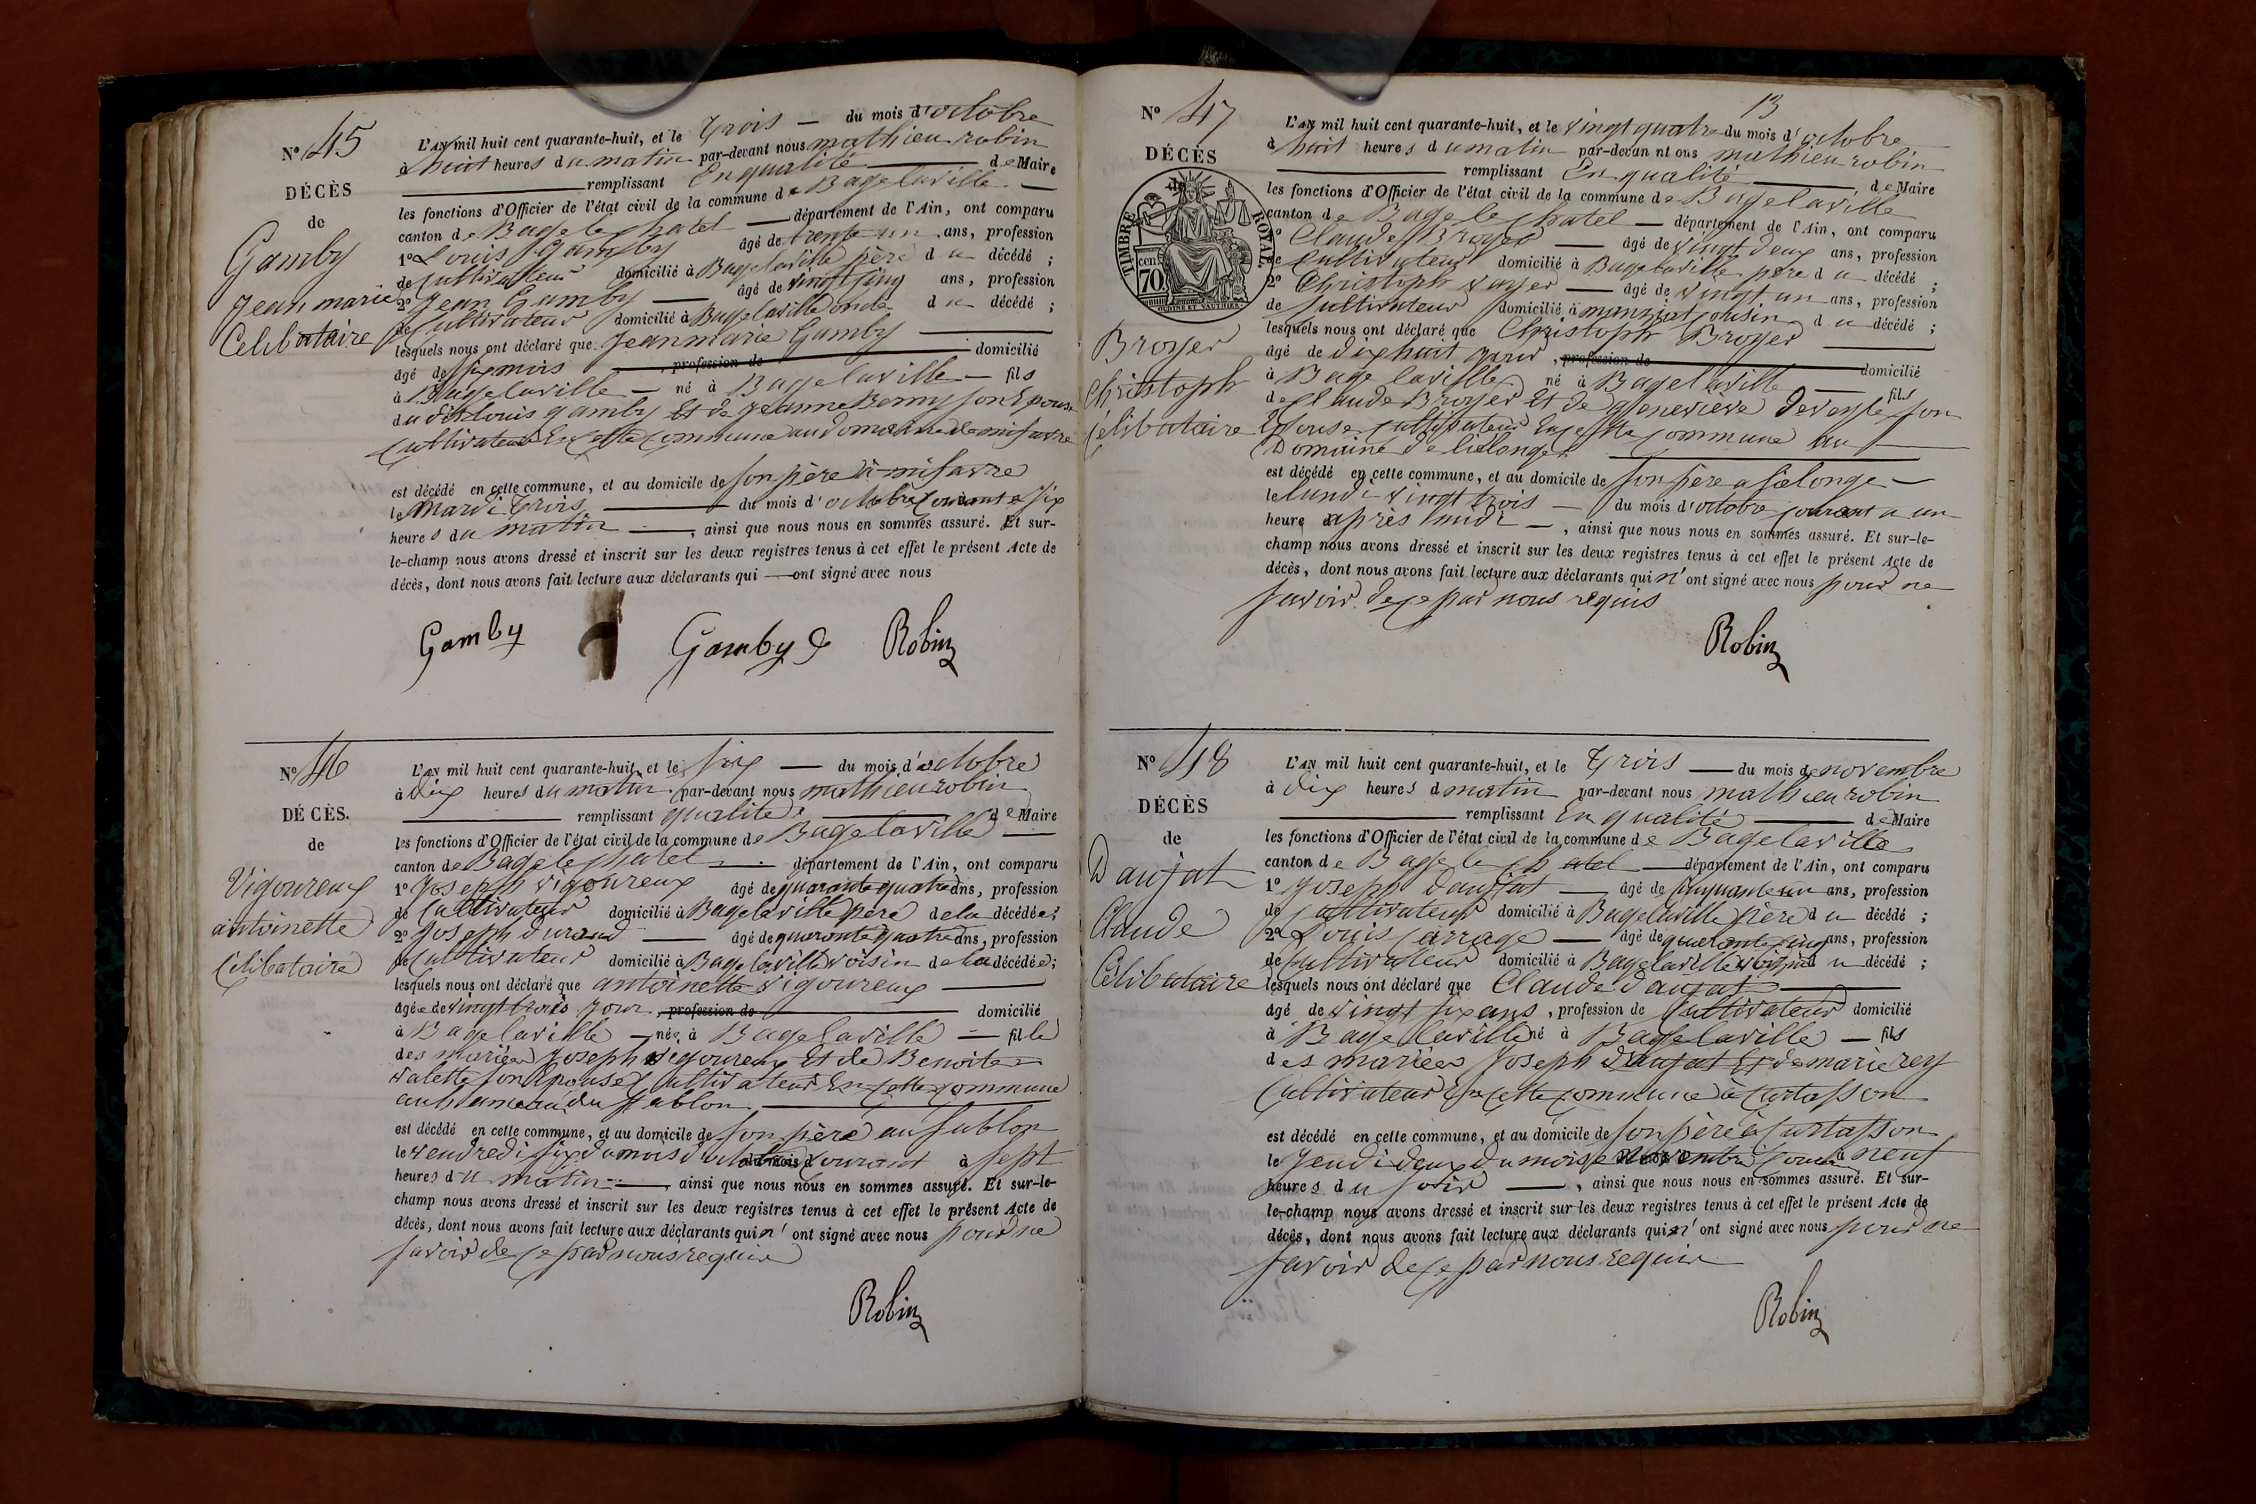 N.º 45
DÉCÈS
de
Gamby
Jean marie
Celibataire
L'AN mil huit cent quarante-huit, et le Trois — du mois d'octobre
à huit heures du matin par-devant nous mathieu robin
remplissant En qualité de Maire
les fonctions d'Officier de l'état civil de la commune de Bagelaville
canton de Bage le chatel département de l'Ain, ont comparu
1º Louis Gamby âgé de trente un ans, profession
de Cultivateur domicilié à Bagelaville père du décédé ;
2º Jean Gamby âgé de vingt cinq ans, profession
de Cultivateur domicilié à Bagelaville oncle du décédé ;
lesquels nous ont déclaré que Jeanmarie Gamby
âgé de six mois , profession de domicilié
à Bagelaville né à Bagelaville fils
du dit Louis gamby Et de Jeanne Bomy son Epouse
Cultivateur En cette commune au domaine de mifavre
est décédé en cette commune, et au domicile de son père à mifavre
le Mardi trois du mois d'octobre Courant a Six
heures du matin , ainsi que nous nous en sommes assuré. Et sur-
le-champ nous avons dressé et inscrit sur les deux registres tenus à cet effet le présent Acte de
décès, dont nous avons fait lecture aux déclarants qui — ont signé avec nous
Gamby Gamby Robin
N.º 46
DÉCÈS.
de
Vigoureux
antoinette
Célibataire
L'AN mil huit cent quarante-huit, et le six — du mois d'octobre
à dix heures du matin par-devant nous mathieu robin
remplissant qualité de Maire
les fonctions d'Officier de l'état civil de la commune de Bagelaville
canton de Bage le chatel département de l'Ain, ont comparu
1º Joseph vigoureux âgé de quarante quatre ans, profession
de Cultivateur domicilié à Bagelaville père de la décédée;
2º Joseph durand âgé de quarante quatre ans, profession
de Cultivateur domicilié à Bagelaville voisin de la décédée;
lesquels nous ont déclaré que antoinette vigoureux
âgée de vingt trois jour , profession de domicilié
à Bagelaville née à Bagelaville fille
des mariés Joseph vigoureux Et de Benoite
valette son Epouse Cultivateur En cette commune
au hameau du sablon
est décédé en cette commune, et au domicile de son père au sablon
le vendredi six du mois d'octobre courant à sept
heures du matin , ainsi que nous nous en sommes assuré. Et sur-le-
champ nous avons dressé et inscrit sur les deux registres tenus à cet effet le présent Acte de
décès, dont nous avons fait lecture aux déclarants qui n'ont signé avec nous pour ne
savoir de ce par nous requis
Robin
13
N.º 47
DÉCÈS
de
TIMBRE ROYAL
70 cen.
Broyer
Christoph
Célibataire
L'AN mil huit cent quarante-huit, et le vingt quatre du mois d'octobre
à huit heures du matin par-devan nt ous mathieu robin
remplissant En qualité de Maire
les fonctions d'Officier de l'état civil de la commune de Bagelaville
canton de Bage le chatel — département de l'Ain, ont comparu
1º Claude Broyer âgé de vingt deux ans, profession
de Cultivateur domicilié à Bagelaville père du décédé ;
2º Christoph âgé de vingt un ans, profession
de Cultivateur domicilié à manziat cousin du décédé ;
lesquels nous ont déclaré que Christoph Broyer
âgé de dix huit jour , profession de domicilié
à Bage laville né à Bagelaville fils
de Claude Broyer Et de Geneviève son
Epouse cultivateur En cette commune au
Domaine de
est décédé en cette commune, et au domicile de son père a
le lundi vingt trois du mois d'octobre courant a un
heure après midi , ainsi que nous nous en sommes assuré. Et sur-le-
champ nous avons dressé et inscrit sur les deux registres tenus à cet effet le présent Acte de
décès, dont nous avons fait lecture aux déclarants qui n'ont signé avec nous pour ne
savoir de ce par nous requis
Robin
N.º 48
DÉCÈS
de
Daujat
Claude
Célibataire
L'AN mil huit cent quarante-huit, et le Trois — du mois de novembre
à dix heures d matin par-devant nous mathieu robin
remplissant En qualité de Maire
les fonctions d'Officier de l'état civil de la commune de Bagelaville
canton de Bage le chatel département de l'Ain, ont comparu
1º Joseph Daujat âgé de cinquante un ans, profession
de cultivateur domicilié à Bagelaville père du décédé ;
2º Louis Carrage âgé de quarante cinq ans, profession
de Cultivateur domicilié à Bagelaville voisin du décédé ;
lesquels nous ont déclaré que Claude Daujat
âgé de vingt six ans , profession de Cultivateur domicilié
à Bage laville né à Bagelaville fils
des mariés Joseph daujat Et de marie rey
Cultivateur En cette commune à Curtasson
est décédé en cette commune, et au domicile de son père à Curtasson
le Jeudi deux du mois de novembre à neuf
heures du soir , ainsi que nous nous en sommes assuré. Et sur-
le-champ nous avons dressé et inscrit sur les deux registres tenus à cet effet le présent Acte de
décès, dont nous avons fait lecture aux déclarants qui n'ont signé avec nous pour ne
savoir de ce par nous requis
Robin